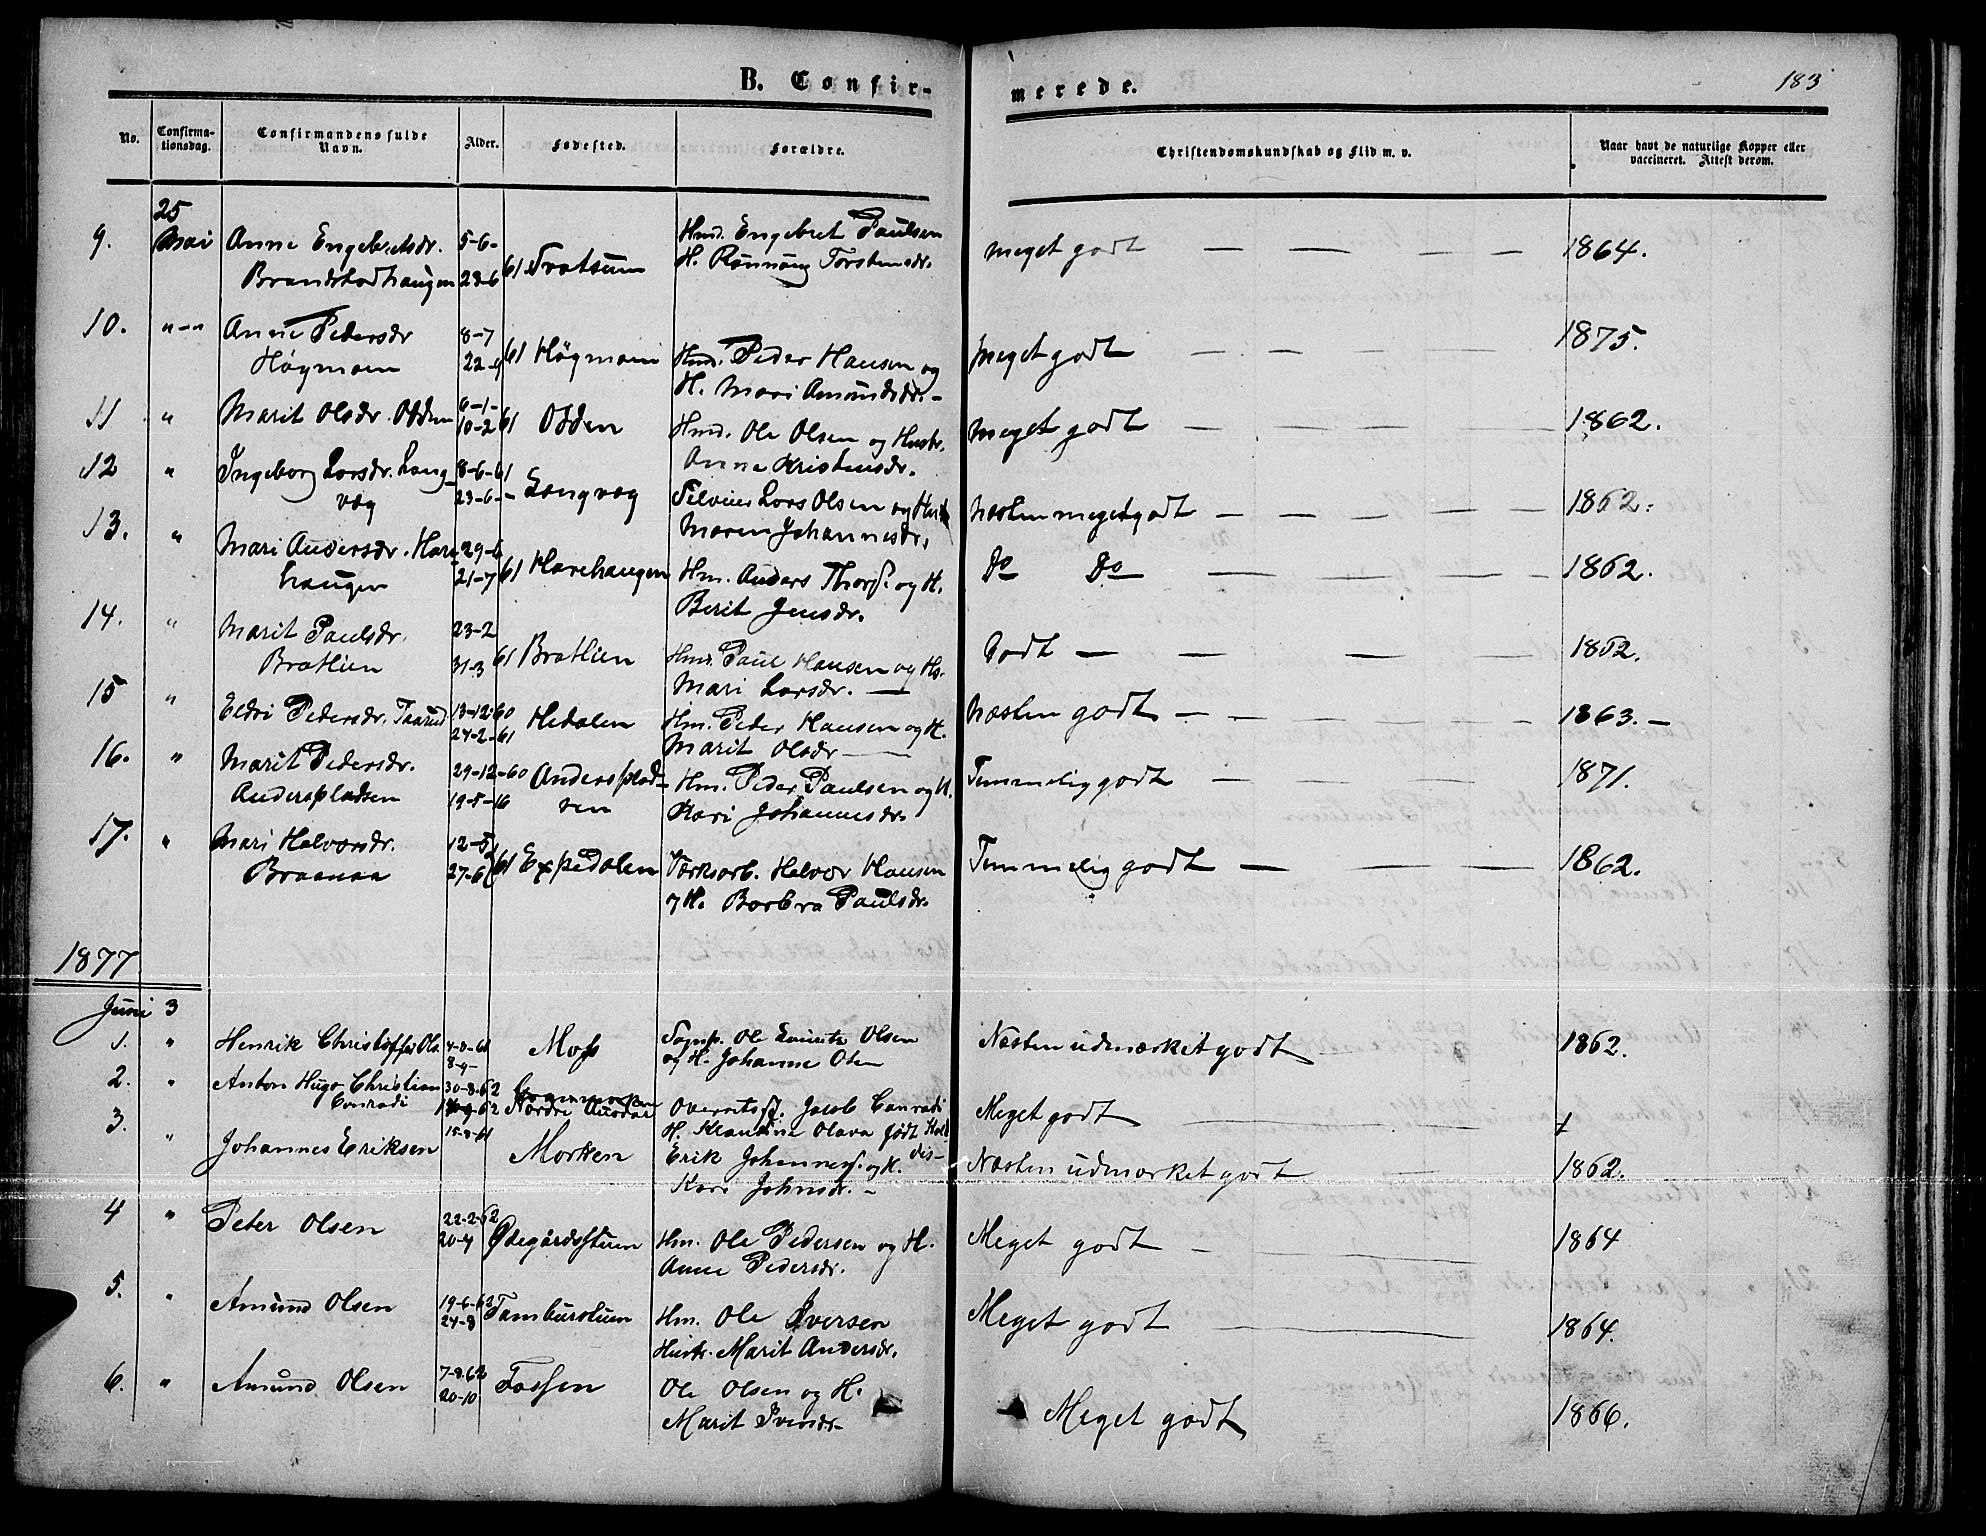 B. Confir-
merede.
183
No.
Confirma-
tionsdag.
Confirmandens fulde
Navn.
Alder.
Fødested.
Forældre.
Christendomskundskab og Flid m. v.
Naar havt de naturlige Kopper eller
vaccineret. Attest derom.
25
9. Mai Anne Engebretsdr. 5-6- Hmd. Engebret Paulsen meget godt — — — — 1864.
Brandstadhaugen 23-6 61 Svatsum H. Rønnaug Torstensdr.
10. "-" Anne Pedersdr 8-7 1875.
Høgmoen 22-9 61 Høgmoen Hmd. Peder Hansen og meget godt — — — —
H. Mari Amundsdr. -
11 " Marit Olsdr. Odden 6-1- 10-2 61 Odden Hmd. Ole Olsen og Hustr. meget godt — — — 1862.
Anne Kristensdr.
12 " Ingeborg Larsdr. Lang- 8-6-61 Langvæg Lars Olsen og næsten meget godt — — — 1862.
væg 23-6- Maren Johannesdr.
13. " Mari Andersdr. Hare- 29-6
haugen 21-7 61 Harehaugen Hm. Anders Thors. og H. Do Do — — — 1862.
Berit Jensdr.
14. " Marit Paulsdr. 23-2
Bratlien 31-3 61 Bratlien Hmd. Paul Hansen og Hs. Godt — — — 1862.
Mari Larsdr. —
15 " Eldri Pedersdr. Taarud 13-12-60 Hedalen Hm. Peder Hansen og H. Næsten godt — — 1863. —
24-2-61 Marit Olsdr —
16. " Marit Pedersdr. 29-12-60 Andersplad- Hm. Peder Paulsen og H. Temmelig godt — — — 1871.
Anderspladsen sen Kari Johannesdr.
17. " Mari Halvorsdr. 12-5
Braanaa 27-6 61 Expedalen Værksarb. Halvor Hansen Temmelig godt — — — 1862.
og H. Barbra Paulsdr.
1877
Juni 3
1. " Henrik Christoffer Ols. Moss Ole Laurits Olsen Næsten udmærket godt 1862.
8-9- og H. Johanne Olsen
2. " Anton Hugo Christian 30-8-62
Conradi Nordre Jacob Conradi Meget godt
H. Klaudine Olava født
3. " Johannes Eriksen Morken Erik Johannes. og H. Næsten udmærket godt 1862.
Kari Johnsdr. -
4 " Peter Olsen 22-2-62 Ødegårdsstuen Hm. Ole Pedersen og H. Meget godt — — 1864
Anne Pedersdr.
5. " Amund Olsen 19-6-62 Tamburstuen Hm. Ole Iversen Meget godt — 1864.
24-8 Hustr. Marit Andersdr.
6. " Amund Olsen Fossen Ole Olsen og H. Meget godt 1866.
20-10 Marit Svensdr.